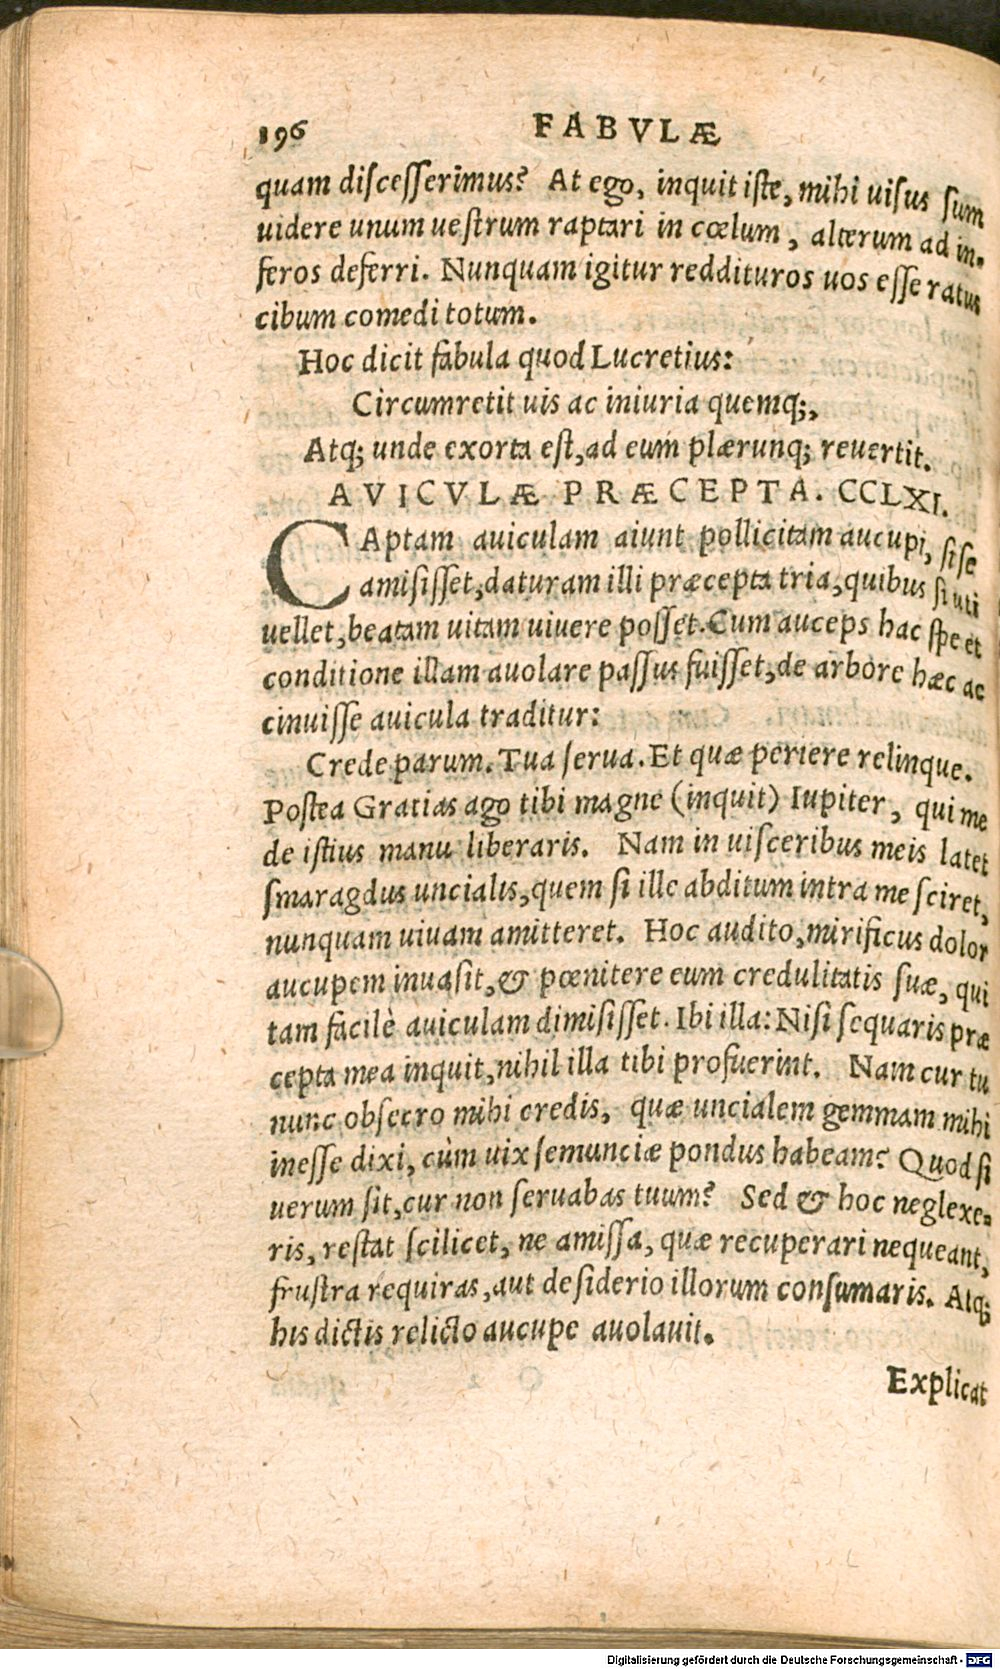 196 FABVLÆ
quam discesserimus? At ego, inquit iste, mihi uisus sum
uidere unum uestrum raptari in cœlum, alterum ad in-
feros deferri. Nunquam igitur reddituros uos esse ratus
cibum comedi totum.
Hoc dicit fabula quod Lucretius:
Circumretit uis ac iniuria quemq;,
Atq; unde exorta est, ad eum plærunq; reuertit.
AVICVLÆ PRÆCEPTA. CCLXI.
CAptam auiculam aiunt pollicitam aucupi, si se
amisisset, daturam illi præcepta tria, quibus si uti
uellet, beatam uitam uiuere posset. Cum auceps hac spe et
conditione illam auolare passus fuisset, de arbore hæc ac
cinuisse auicula traditur:
Crede parum. Tua serua. Et quæ periere relinque.
Postea Gratias ago tibi magne (inquit) Iupiter, qui me
de istius manu liberaris. Nam in uisceribus meis latet
smaragdus uncialis, quem si ille abditum intra me sciret,
nunquam uiuam amitteret. Hoc audito, mirificus dolor
aucupem inuasit, & pœnitere eum credulitatis suæ, qui
tam facilè auiculam dimisisset. Ibi illa: Nisi sequaris præ
cepta mea inquit, nihil illa tibi profuerint. Nam cur tu
nunc obsecro mihi credis, quæ uncialem gemmam mihi
inesse dixi, cùm uix semunciæ pondus habeam? Quod si
uerum sit, cur non seruabas tuum? Sed & hoc neglexe-
ris, restat scilicet, ne amissa, quæ recuperari nequeant,
frustra requiras, aut desiderio illorum consumaris. Atq;
his dictis relicto aucupe auolauit.
Explicat
Digitalisierung gefördert durch die Deutsche Forschungsgemeinschaft - DFG